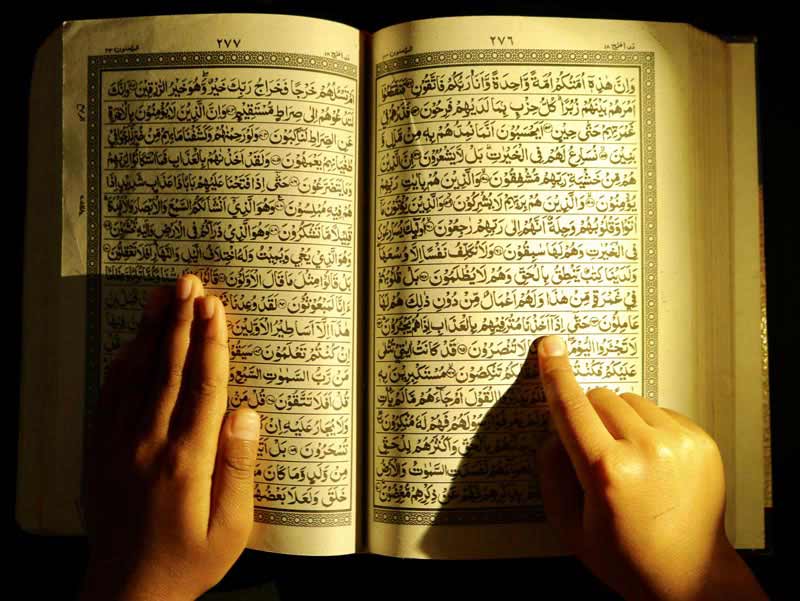 قد افلح ١٨
٢٧٦
وَاِنَّ هٰذِهٖٓ اُمَّتُكُمْ اُمَّةً وَّاحِدَةً وَّاَنَا رَبُّكُمْ فَاتَّقُوْنِ فَتَقَطَّعُوْٓا
اَمْرَهُمْ بَيْنَهُمْ زُبُرًا كُلُّ حِزْبٍۭ بِمَا لَدَيْهِمْ فَرِحُوْنَ فَذَرْهُمْ فِيْ
غَمْرَتِهِمْ حَتّٰى حِيْنٍ اَيَحْسَبُوْنَ اَنَّمَا نُمِدُّهُمْ بِهٖ مِنْ مَّالٍ وَّ
بَنِيْنَ نُسَارِعُ لَهُمْ فِي الْخَيْرٰتِ بَلْ لَّا يَشْعُرُوْنَ اِنَّ الَّذِيْنَ
هُمْ مِّنْ خَشْيَةِ رَبِّهِمْ مُّشْفِقُوْنَ وَالَّذِيْنَ هُمْ بِاٰيٰتِ رَبِّهِمْ
يُؤْمِنُوْنَ وَالَّذِيْنَ هُمْ بِرَبِّهِمْ لَا يُشْرِكُوْنَ وَالَّذِيْنَ يُؤْتُوْنَ مَآ
اٰتَوْا وَّقُلُوْبُهُمْ وَجِلَةٌ اَنَّهُمْ اِلٰى رَبِّهِمْ رٰجِعُوْنَ اُولٰٓئِكَ يُسٰرِعُوْنَ
فِي الْخَيْرٰتِ وَهُمْ لَهَا سٰبِقُوْنَ وَلَا نُكَلِّفُ نَفْسًا اِلَّا وُسْعَهَا
وَلَدَيْنَا كِتٰبٌ يَّنْطِقُ بِالْحَقِّ وَهُمْ لَا يُظْلَمُوْنَ بَلْ قُلُوْبُهُمْ
فِيْ غَمْرَةٍ مِّنْ هٰذَا وَلَهُمْ اَعْمَالٌ مِّنْ دُوْنِ ذٰلِكَ هُمْ لَهَا
عٰمِلُوْنَ حَتّٰٓى اِذَآ اَخَذْنَا مُتْرَفِيْهِمْ بِالْعَذَابِ اِذَا هُمْ يَجْـَٔرُوْنَ
لَا تَجْـَٔرُوا الْيَوْمَ لَا تُنْصَرُوْنَ قَدْ كَانَتْ اٰيٰتِيْ تُتْلٰى
عَلَيْكُمْ فَكُنْتُمْ تَنْكِصُوْنَ مُسْتَكْبِرِيْنَ بِهٖ
الْقَوْلَ اَمْ جَآءَهُمْ مَّا لَمْ يَاْتِ
فَهُمْ لَهٗ مُنْكِرُوْنَ
بِالْحَقِّ وَاَكْثَرُهُمْ لِلْحَقِّ
لَفَسَدَتِ السَّمٰوٰتُ وَالْاَرْضُ
عَنْ ذِكْرِهِمْ مُّعْرِضُوْنَ
قد افلح ١٨
٢٧٧
المؤمنون ٢٣
اَمْ تَسْـَٔلُهُمْ خَرْجًا فَخَرَاجُ رَبِّكَ خَيْرٌ وَّهُوَ خَيْرُ الرّٰزِقِيْنَ وَاِنَّكَ
لَتَدْعُوْهُمْ اِلٰى صِرَاطٍ مُّسْتَقِيْمٍ وَاِنَّ الَّذِيْنَ لَا يُؤْمِنُوْنَ بِالْاٰخِرَةِ
عَنِ الصِّرَاطِ لَنٰكِبُوْنَ وَلَوْ رَحِمْنٰهُمْ وَكَشَفْنَا مَا بِهِمْ مِّنْ ضُرٍّ لَّلَجُّوْا فِيْ
طُغْيَانِهِمْ يَعْمَهُوْنَ وَلَقَدْ اَخَذْنٰهُمْ بِالْعَذَابِ فَمَا اسْتَكَانُوْا لِرَبِّهِمْ
وَمَا يَتَضَرَّعُوْنَ حَتّٰٓى اِذَا فَتَحْنَا عَلَيْهِمْ بَابًا ذَا عَذَابٍ شَدِيْدٍ اِذَا
هُمْ فِيْهِ مُبْلِسُوْنَ وَهُوَ الَّذِيْٓ اَنْشَاَ لَكُمُ السَّمْعَ وَالْاَبْصَارَ وَالْاَفْـِٕدَةَ
قَلِيْلًا مَّا تَشْكُرُوْنَ وَهُوَ الَّذِيْ ذَرَاَكُمْ فِي الْاَرْضِ وَاِلَيْهِ تُحْشَرُوْنَ
وَهُوَ الَّذِيْ يُحْيٖ وَيُمِيْتُ وَلَهُ اخْتِلَافُ الَّيْلِ وَالنَّهَارِ اَفَلَا تَعْقِلُوْنَ
بَلْ قَالُوْا مِثْلَ مَا قَالَ الْاَوَّلُوْنَ قَالُوْٓا
ءَاِنَّا لَمَبْعُوْثُوْنَ لَقَدْ وُعِدْنَا
هٰذَآ اِلَّآ اَسَاطِيْرُ الْاَوَّلِيْنَ
اِنْ كُنْتُمْ تَعْلَمُوْنَ سَيَقُوْلُوْنَ
مَنْ رَّبُّ السَّمٰوٰتِ السَّبْعِ وَ
قُلْ اَفَلَا تَتَّقُوْنَ قُلْ مَنْ
وَلَا يُجَارُ عَلَيْهِ اِنْ
تُسْحَرُوْنَ بَلْ
مِنْ وَّلَدٍ وَّمَا كَانَ مَعَهٗ
خَلَقَ وَلَعَلَا بَعْضُهُمْ